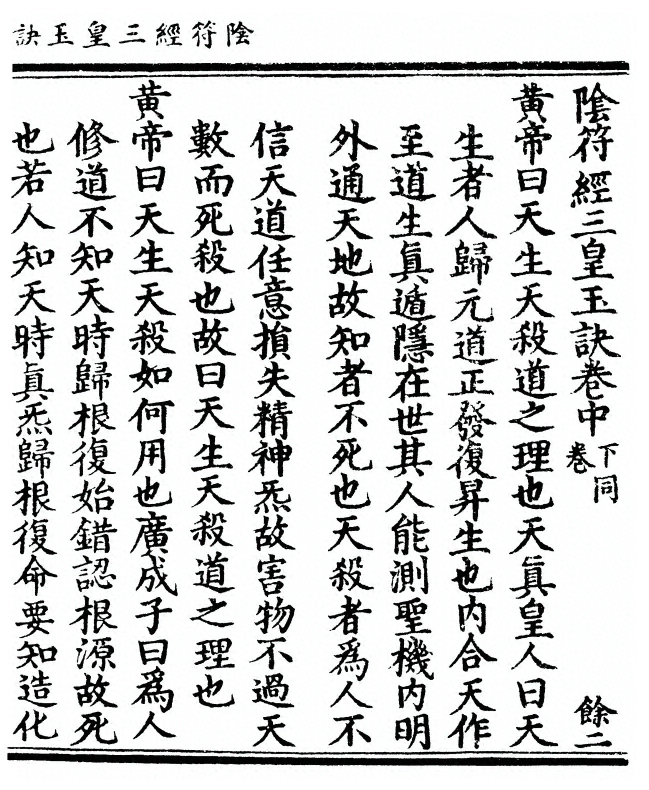 陰符經三皇玉訣
陰符經三皇玉訣卷中 下卷同 餘二
黃帝曰天生天殺道之理也天眞皇人曰天
生者人歸元道正發復昇生也内合天作
至道生眞遁隱在世其人能測聖機内明
外通天地故知者不死也天殺者爲人不
信天道任意損失精神炁故害物不過天
數而死殺也故曰天生天殺道之理也
黃帝曰天生天殺如何用也廣成子曰爲人
修道不知天時歸根復始錯認根源故死
也若人知天時眞炁歸根復命要知造化